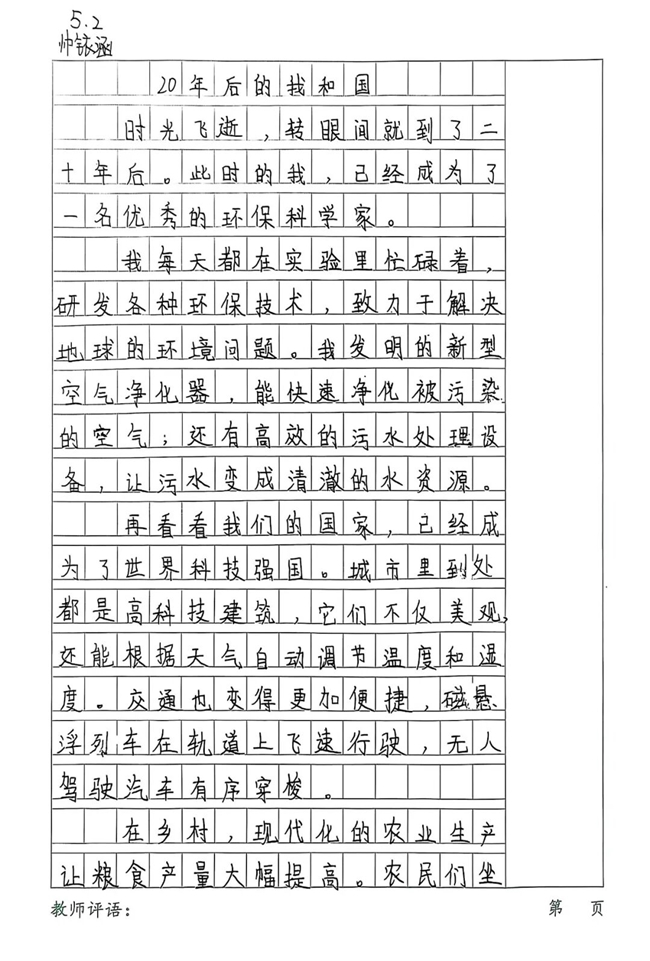 5.2
帅铱涵
20年后的我和国
时光飞逝，转眼间就到了二
十年后。此时的我，已经成为了
一名优秀的环保科学家。
我每天都在实验里忙碌着，
研发各种环保技术，致力于解决
地球的环境问题。我发明的新型
空气净化器，能快速净化被污染
的空气；还有高效的污水处理设
备，让污水变成清澈的水资源。
再看看我们的国家，已经成
为了世界科技强国。城市里到处
都是高科技建筑，它们不仅美观，
还能根据天气自动调节温度和湿
度。交通也变得更加便捷，磁悬
浮列车在轨道上飞速行驶，无人
驾驶汽车有序穿梭。
在乡村，现代化的农业生产
让粮食产量大幅提高。农民们坐
教师评语： 第 页